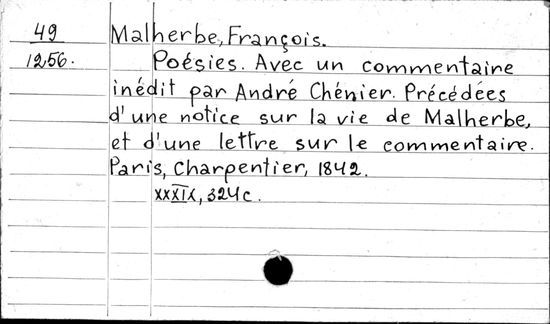 49
1256.
Malherbe, François.
Poésies. Avec un commentaire
inédit par André Chénier. Précédées
d'une notice sur la vie de Malherbe,
et d'une lettre sur le commentaire.
Paris, Charpentier, 1842.
XXXIX, 324c.